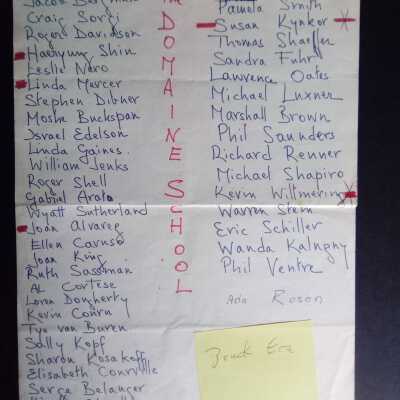 Craig Sorgi
Roger Davidson
Haeryung Shin
Leslie Nero
Linda Mercer
Stephen Dibner
Moshe Buckspan
Israel Edelson
Linda Gaines
William Jenks
Roger Shell
Gabriel Arato
Wyatt Sutherland
Joan Alvarez
Ellen Caruso
Joan King
Ruth Sassman
AL Cortese
Loren Dougherty
Kevin
Tyo van Buren
Sally Kopf
Sharon Kosakoff
Elisabeth Courville
Serge Belanger
DOMAINE SCHOOL
Pamela Smith
Susan Kynkor
Thomas
Sandra Fuhr
Lawrence Oates
Michael Luxner
Marshall Brown
Phil Saunders
Richard Renner
Michael Shapiro
Kevin Willmering
Warren Stein
Eric Schiller
Wanda Kalnyny
Phil Ventre
Ada Rosen